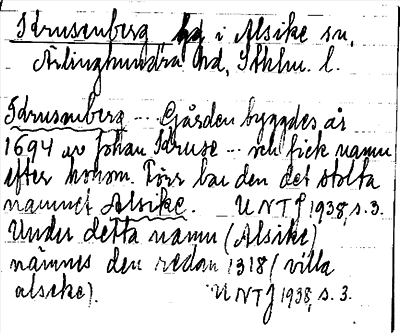 Krusenberg hg i Alsike sn,
Ärlinghundra hd, Sthlm. l.
Krusenberg -- Gården byggdes år
1694 av Johan Kruse -- och fick namn
efter honom. Förr bar den det stolta
namnet Alsike. UNTJ 1938, s. 3.
Under detta namn (Alsike)
nämnes den redan 1318 (villa
alseke). UNTJ 1938, s. 3.